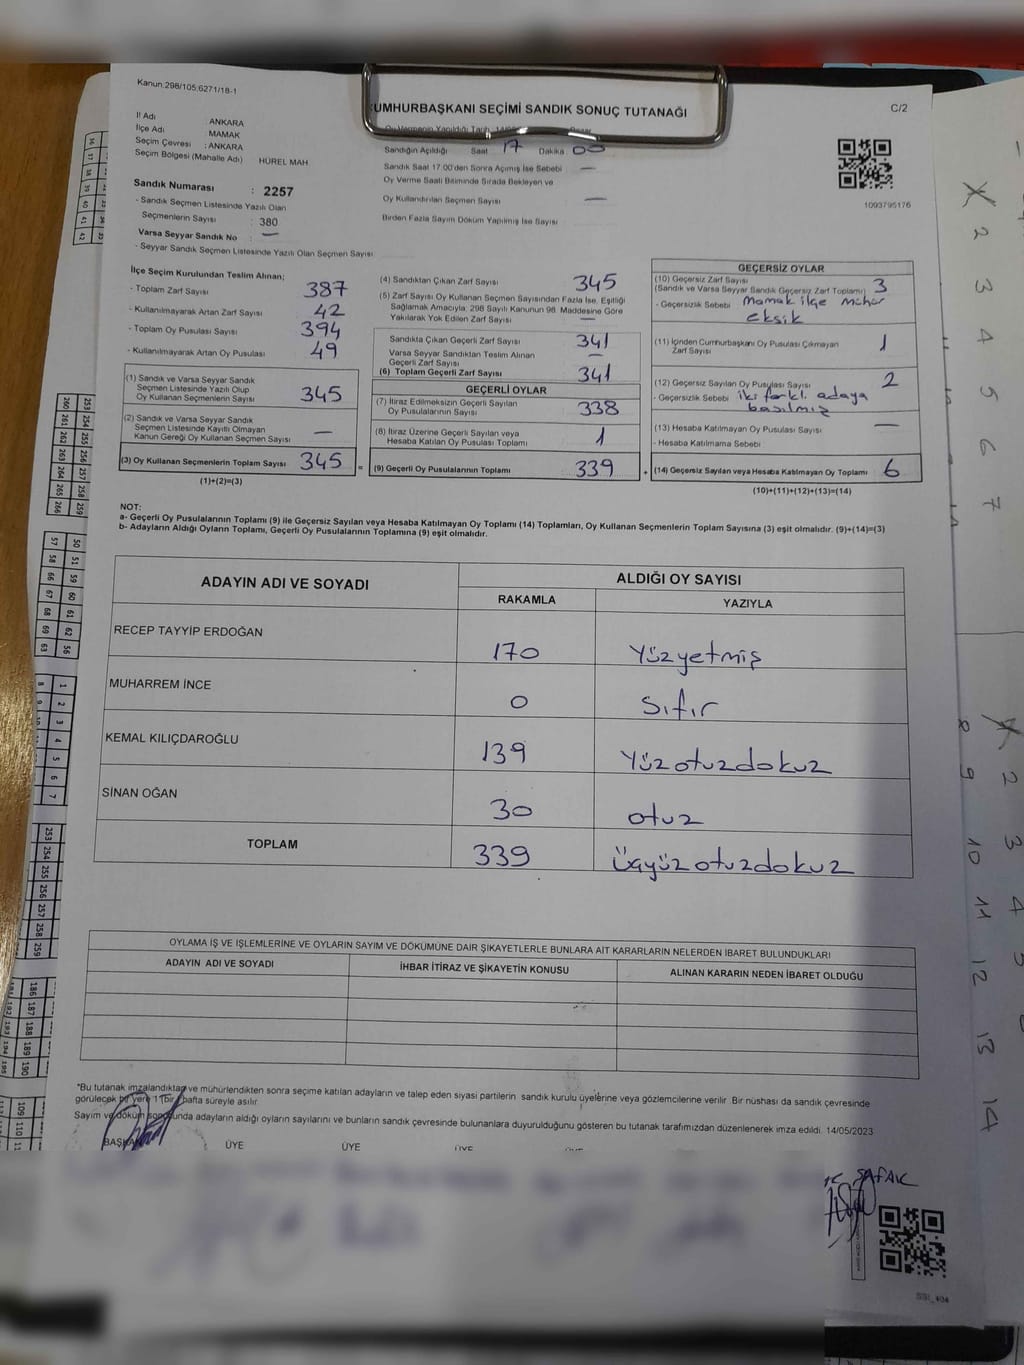 Kanun:298/105;6271/18-1
CUMHURBAŞKANI SEÇİMİ SANDIK SONUÇ TUTANAĞI
C/2
İl Adı : ANKARA
İlçe Adı : MAMAK
Seçim Çevresi : ANKARA
Seçim Bölgesi (Mahalle Adı) HÜREL MAH
Oy Vermenin Yapıldığı Tarih
Sandığın Açıldığı Saat 17 Dakika 00
Sandık Saat 17:00'den Sonra Açımış İse Sebebi —
Oy Verme Saati Bitiminde Sırada Bekleyen ve
Oy Kullandırılan Seçmen Sayısı —
Birden Fazla Sayım Döküm Yapılmış İse Sayısı
1093795176
Sandık Numarası : 2257
- Sandık Seçmen Listesinde Yazılı Olan
Seçmenlerin Sayısı : 380
Varsa Seyyar Sandık No : —
- Seyyar Sandık Seçmen Listesinde Yazılı Olan Seçmen Sayısı
İlçe Seçim Kurulundan Teslim Alınan;
- Toplam Zarf Sayısı 387
- Kullanılmayarak Artan Zarf Sayısı 42
- Toplam Oy Pusulası Sayısı 394
- Kullanılmayarak Artan Oy Pusulası 49
(1) Sandık ve Varsa Seyyar Sandık
Seçmen Listesinde Yazılı Olup
Oy Kullanan Seçmenlerin Sayısı 345
(2) Sandık ve Varsa Seyyar Sandık
Seçmen Listesinde Kayıtlı Olmayan
Kanun Gereği Oy Kullanan Seçmen Sayısı —
(3) Oy Kullanan Seçmenlerin Toplam Sayısı 345 =
(1)+(2)=(3)
(4) Sandıktan Çıkan Zarf Sayısı 345
(5) Zarf Sayısı Oy Kullanan Seçmen Sayısından Fazla İse, Eşitliği
Sağlamak Amacıyla: 298 Sayılı Kanunun 98. Maddesine Göre
Yakılarak Yok Edilen Zarf Sayısı —
Sandıkta Çıkan Geçerli Zarf Sayısı 341
Varsa Seyyar Sandıktan Teslim Alınan
Geçerli Zarf Sayısı —
(6) Toplam Geçerli Zarf Sayısı 341
GEÇERLİ OYLAR
(7) İtiraz Edilmeksizin Geçerli Sayılan
Oy Pusulalarının Sayısı 338
(8) İtiraz Üzerine Geçerli Sayılan veya
Hesaba Katılan Oy Pusulası Toplamı 1
(9) Geçerli Oy Pusulalarının Toplamı 339 +
GEÇERSİZ OYLAR
(10) Geçersiz Zarf Sayısı 3
(Sandık ve Varsa Seyyar Sandık Geçersiz Zarf Toplamı)
- Geçersizlik Sebebi Mamak ilçe mühür
eksik
(11) İçinden Cumhurbaşkanı Oy Pusulası Çıkmayan
Zarf Sayısı 1
(12) Geçersiz Sayılan Oy Pusulası Sayısı 2
- Geçersizlik Sebebi iki farklı adaya
basılmış
(13) Hesaba Katılmayan Oy Pusulası Sayısı —
- Hesaba Katılmama Sebebi
(14) Geçersiz Sayılan veya Hesaba Katılmayan Oy Toplamı 6
(10)+(11)+(12)+(13)=(14)
NOT:
a- Geçerli Oy Pusulalarının Toplamı (9) ile Geçersiz Sayılan veya Hesaba Katılmayan Oy Toplamı (14) Toplamları, Oy Kullanan Seçmenlerin Toplam Sayısına (3) eşit olmalıdır. (9)+(14)=(3)
b- Adayların Aldığı Oyların Toplamı, Geçerli Oy Pusulalarının Toplamına (9) eşit olmalıdır.
ADAYIN ADI VE SOYADI
ALDIĞI OY SAYISI
RAKAMLA YAZIYLA
RECEP TAYYİP ERDOĞAN 170 Yüzyetmiş
MUHARREM İNCE 0 Sıfır
KEMAL KILIÇDAROĞLU 139 Yüzotuzdokuz
SİNAN OĞAN 30 otuz
TOPLAM 339 Üçyüzotuzdokuz
OYLAMA İŞ VE İŞLEMLERİNE VE OYLARIN SAYIM VE DÖKÜMÜNE DAİR ŞİKAYETLERLE BUNLARA AİT KARARLARIN NELERDEN İBARET BULUNDUKLARI
ADAYIN ADI VE SOYADI İHBAR İTİRAZ VE ŞİKAYETİN KONUSU ALINAN KARARIN NEDEN İBARET OLDUĞU
*Bu tutanak imzalandıktan ve mühürlendikten sonra seçime katılan adayların ve talep eden siyasi partilerin sandık kurulu üyelerine veya gözlemcilerine verilir. Bir nüshası da sandık çevresinde
görülecek bir yere 1 (bir) hafta süreyle asılır.
Sayım ve döküm sonucunda adayların aldığı oyların sayılarını ve bunların sandık çevresinde bulunanlara duyurulduğunu gösteren bu tutanak tarafımızdan düzenlenerek imza edildi. 14/05/2023
BAŞKAN ÜYE ÜYE ÜYE ÜYE
ŞAFAK